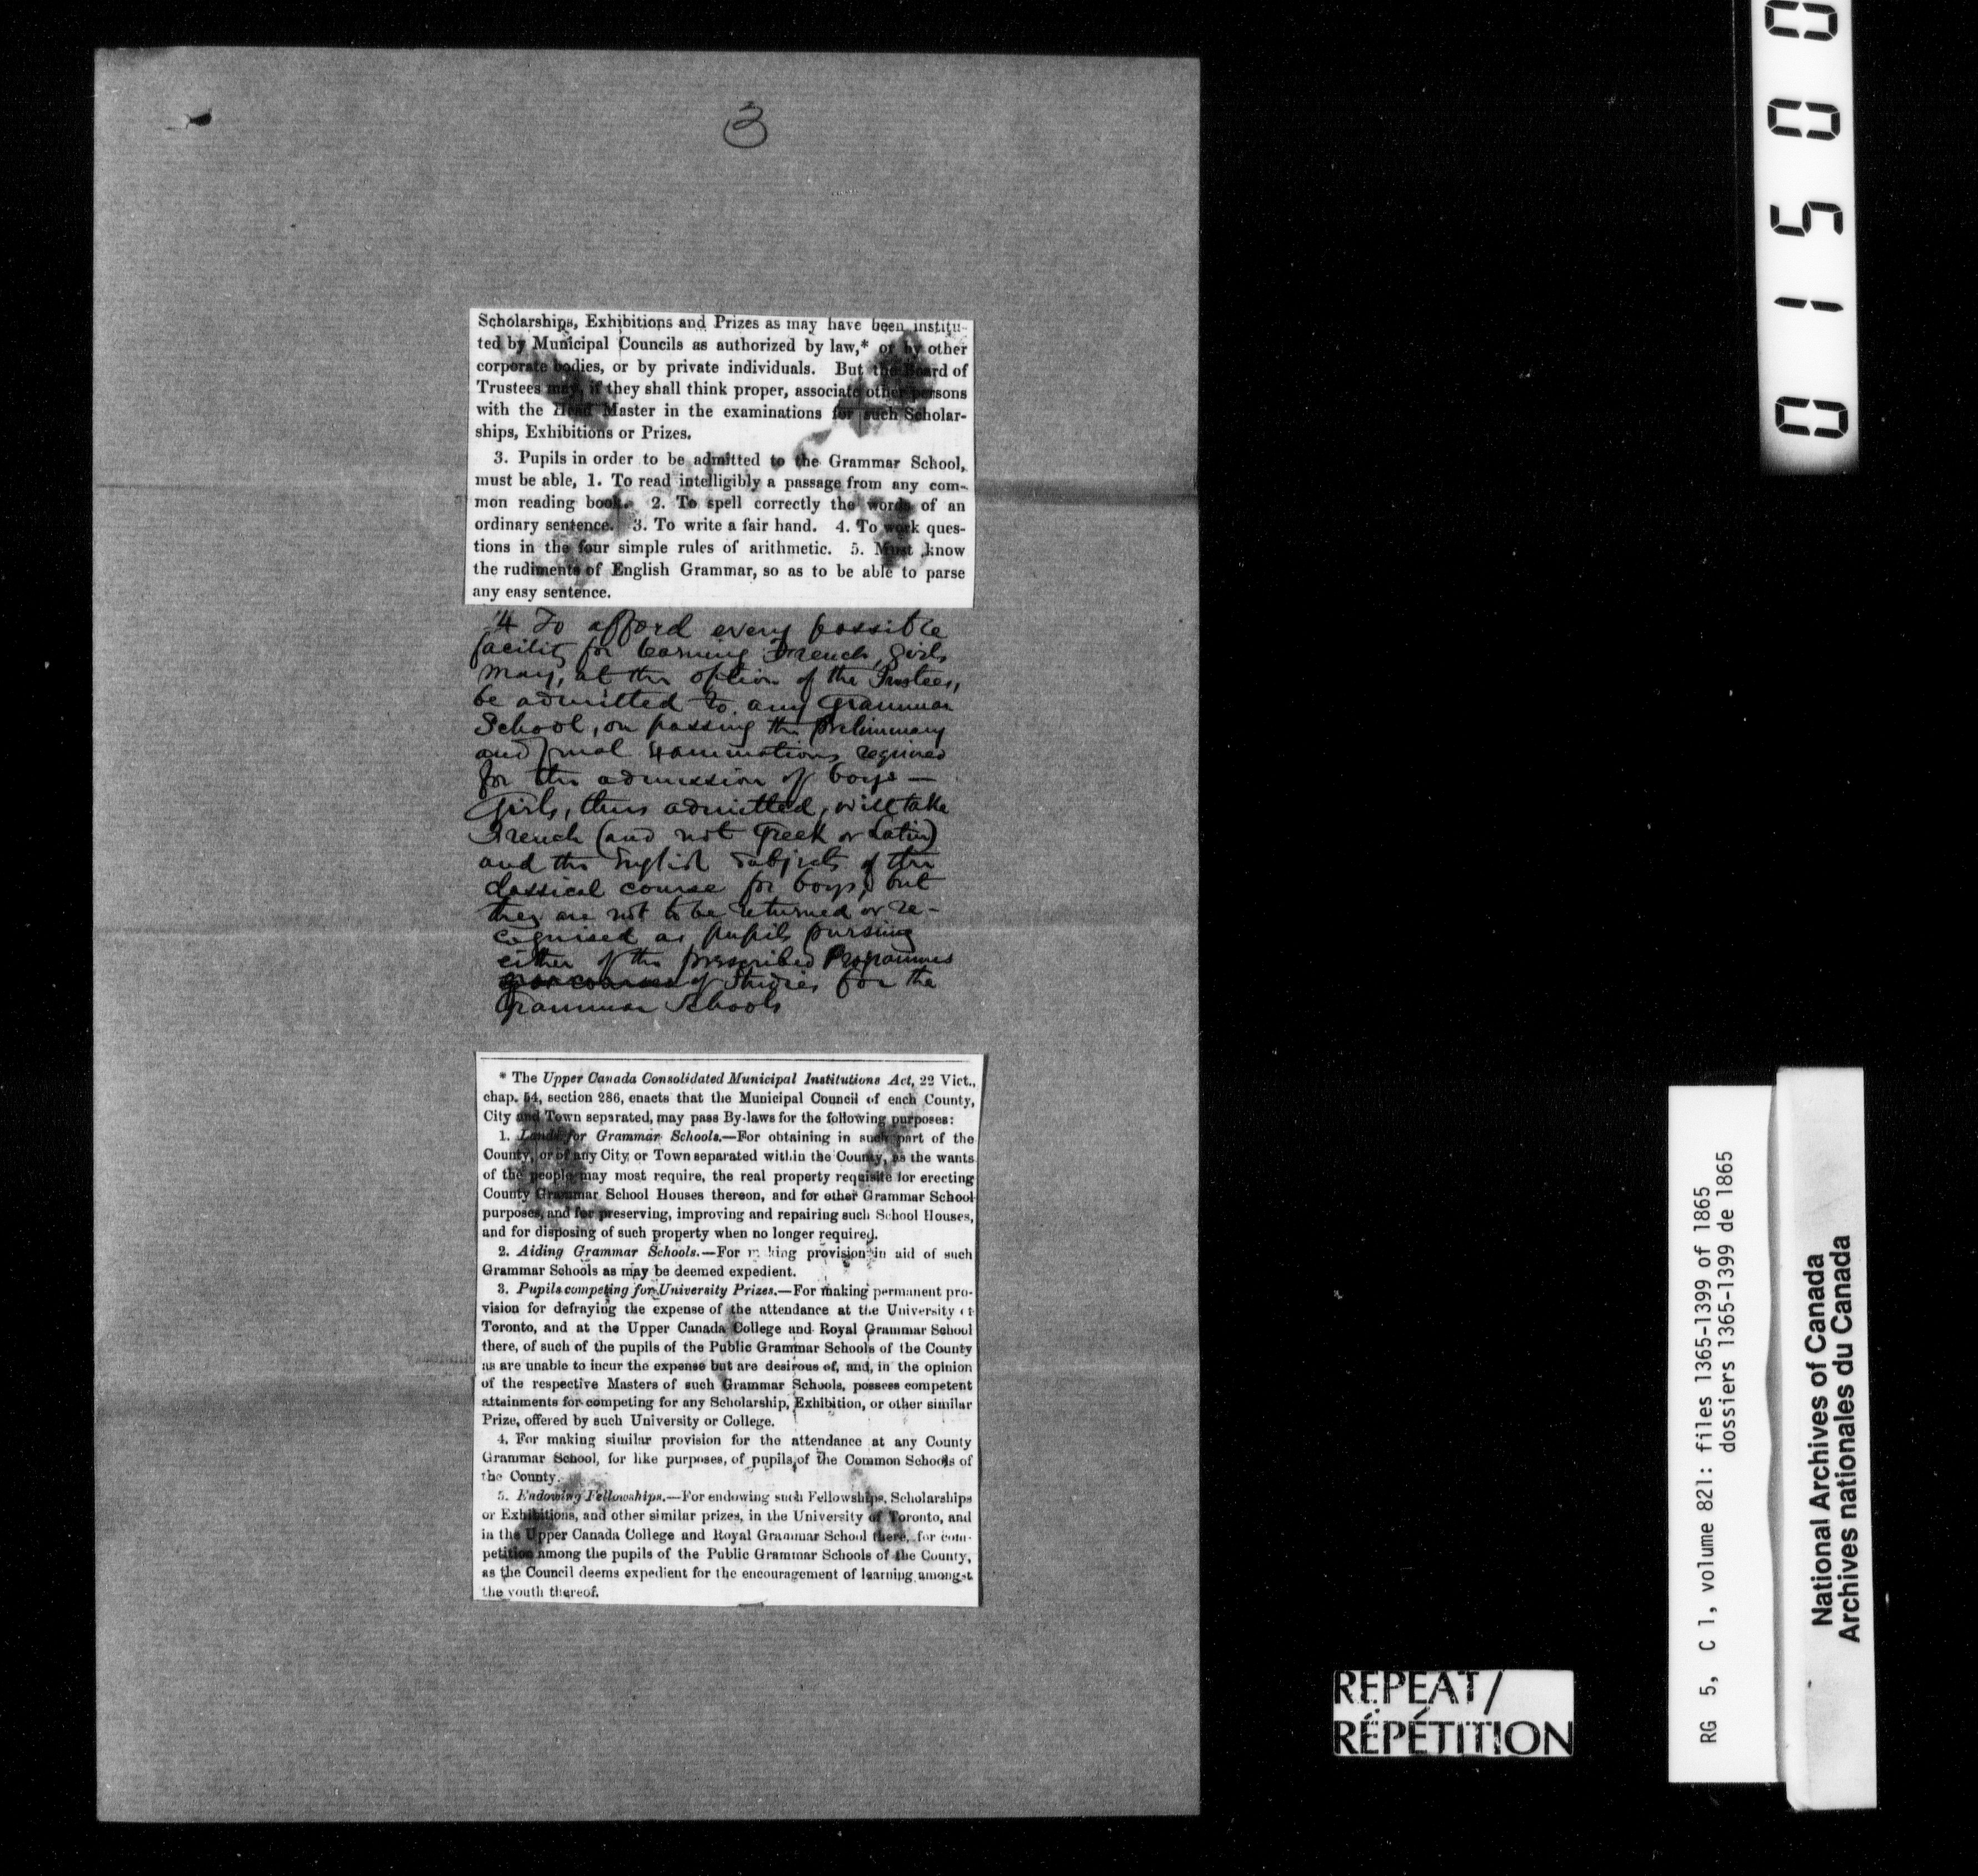 3
Scholarships, Exhibitions and Prizes as may have been institu-
ted by Municipal Councils as authorized by law,* or by other
corporate bodies, or by private individuals. But the Board of
Trustees may, if they shall think proper, associate other persons
with the Head Master in the examinations for such Scholar-
ships, Exhibitions or Prizes.
3. Pupils in order to be admitted to the Grammar School,
must be able, 1. To read intelligibly a passage from any com-
mon reading book. 2. To spell correctly the words of an
ordinary sentence. 3. To write a fair hand. 4. To work ques-
tions in the four simple rules of arithmetic. 5. Must know
the rudiments of English Grammar, so as to be able to parse
any easy sentence.
4 To afford every possible
facility for learning French, girls
may, at the option of the Trustees,
be admitted to any Grammar
School, on passing the preliminary
and final examinations required
for the admission of boys —
Girls, thus admitted, will take
French (and not Greek or Latin)
and the English subjects of the
classical course for boys, but
they are not to be returned or re-
cognised as pupils pursuing
either of the prescribed Programmes
of Studies for the
Grammar Schools
* The Upper Canada Consolidated Municipal Institutions Act, 22 Vict.,
chap. 54, section 286, enacts that the Municipal Council of each County,
City and Town separated, may pass By-laws for the following purposes:
1. Lands for Grammar Schools.—For obtaining in such part of the
County, or of any City or Town separated within the County, as the wants
of the people may most require, the real property requisite for erecting
County Grammar School Houses thereon, and for other Grammar School
purposes, and for preserving, improving and repairing such School Houses,
and for disposing of such property when no longer required.
2. Aiding Grammar Schools.—For making provision in aid of such
Grammar Schools as may be deemed expedient.
3. Pupils competing for University Prizes.—For making permanent pro-
vision for defraying the expense of the attendance at the University of
Toronto, and at the Upper Canada College and Royal Grammar School
there, of such of the pupils of the Public Grammar Schools of the County
as are unable to incur the expense but are desirous of, and, in the opinion
of the respective Masters of such Grammar Schools, possess competent
attainments for competing for any Scholarship, Exhibition, or other similar
Prize, offered by such University or College.
4. For making similar provision for the attendance at any County
Grammar School, for like purposes, of pupils of the Common Schools of
the County.
5. Endowing Fellowships.—For endowing such Fellowships, Scholarships
or Exhibitions, and other similar prizes, in the University of Toronto, and
in the Upper Canada College and Royal Grammar School there, for com-
petition among the pupils of the Public Grammar Schools of the County,
as the Council deems expedient for the encouragement of learning amongst
the youth thereof.
01500
REPEAT/
RÉPÉTITION
RG 5, C 1, volume 821: files 1365-1399 of 1865
dossiers 1365-1399 de 1865
National Archives of Canada
Archives nationales du Canada